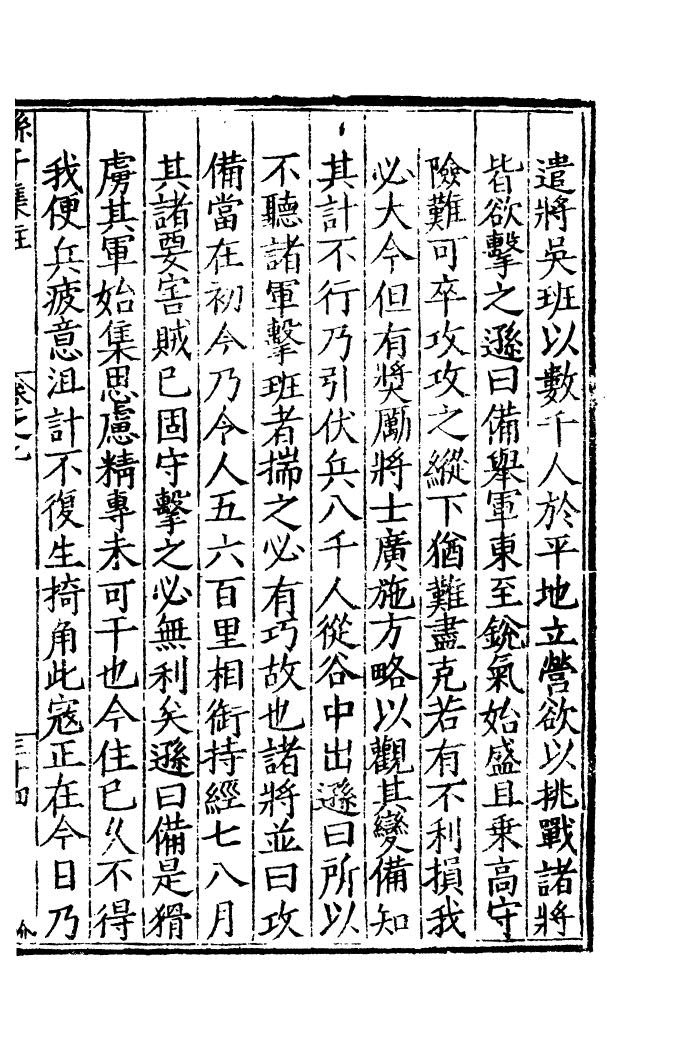 遣將吳班以數千人於平地立營欲以挑戰諸將
皆欲擊之遜曰備舉軍東至銳氣始盛且乗高守
險難可卒攻攻之縱下猶難盡克若有不利損我
必大今但有奬勵將士廣施方略以觀其變備知
其計不行乃引伏兵八千人從谷中出遜曰所以
不聽諸軍擊班者揣之必有巧故也諸將並曰攻
備當在初今乃令人五六百里相銜持經七八月
其諸要害賊已固守擊之必無利矣遜曰備是猾
虜其軍始集思慮精專未可干也今住已久不得
我便兵疲意沮計不復生掎角此寇正在今日乃
孫子集註
三十四